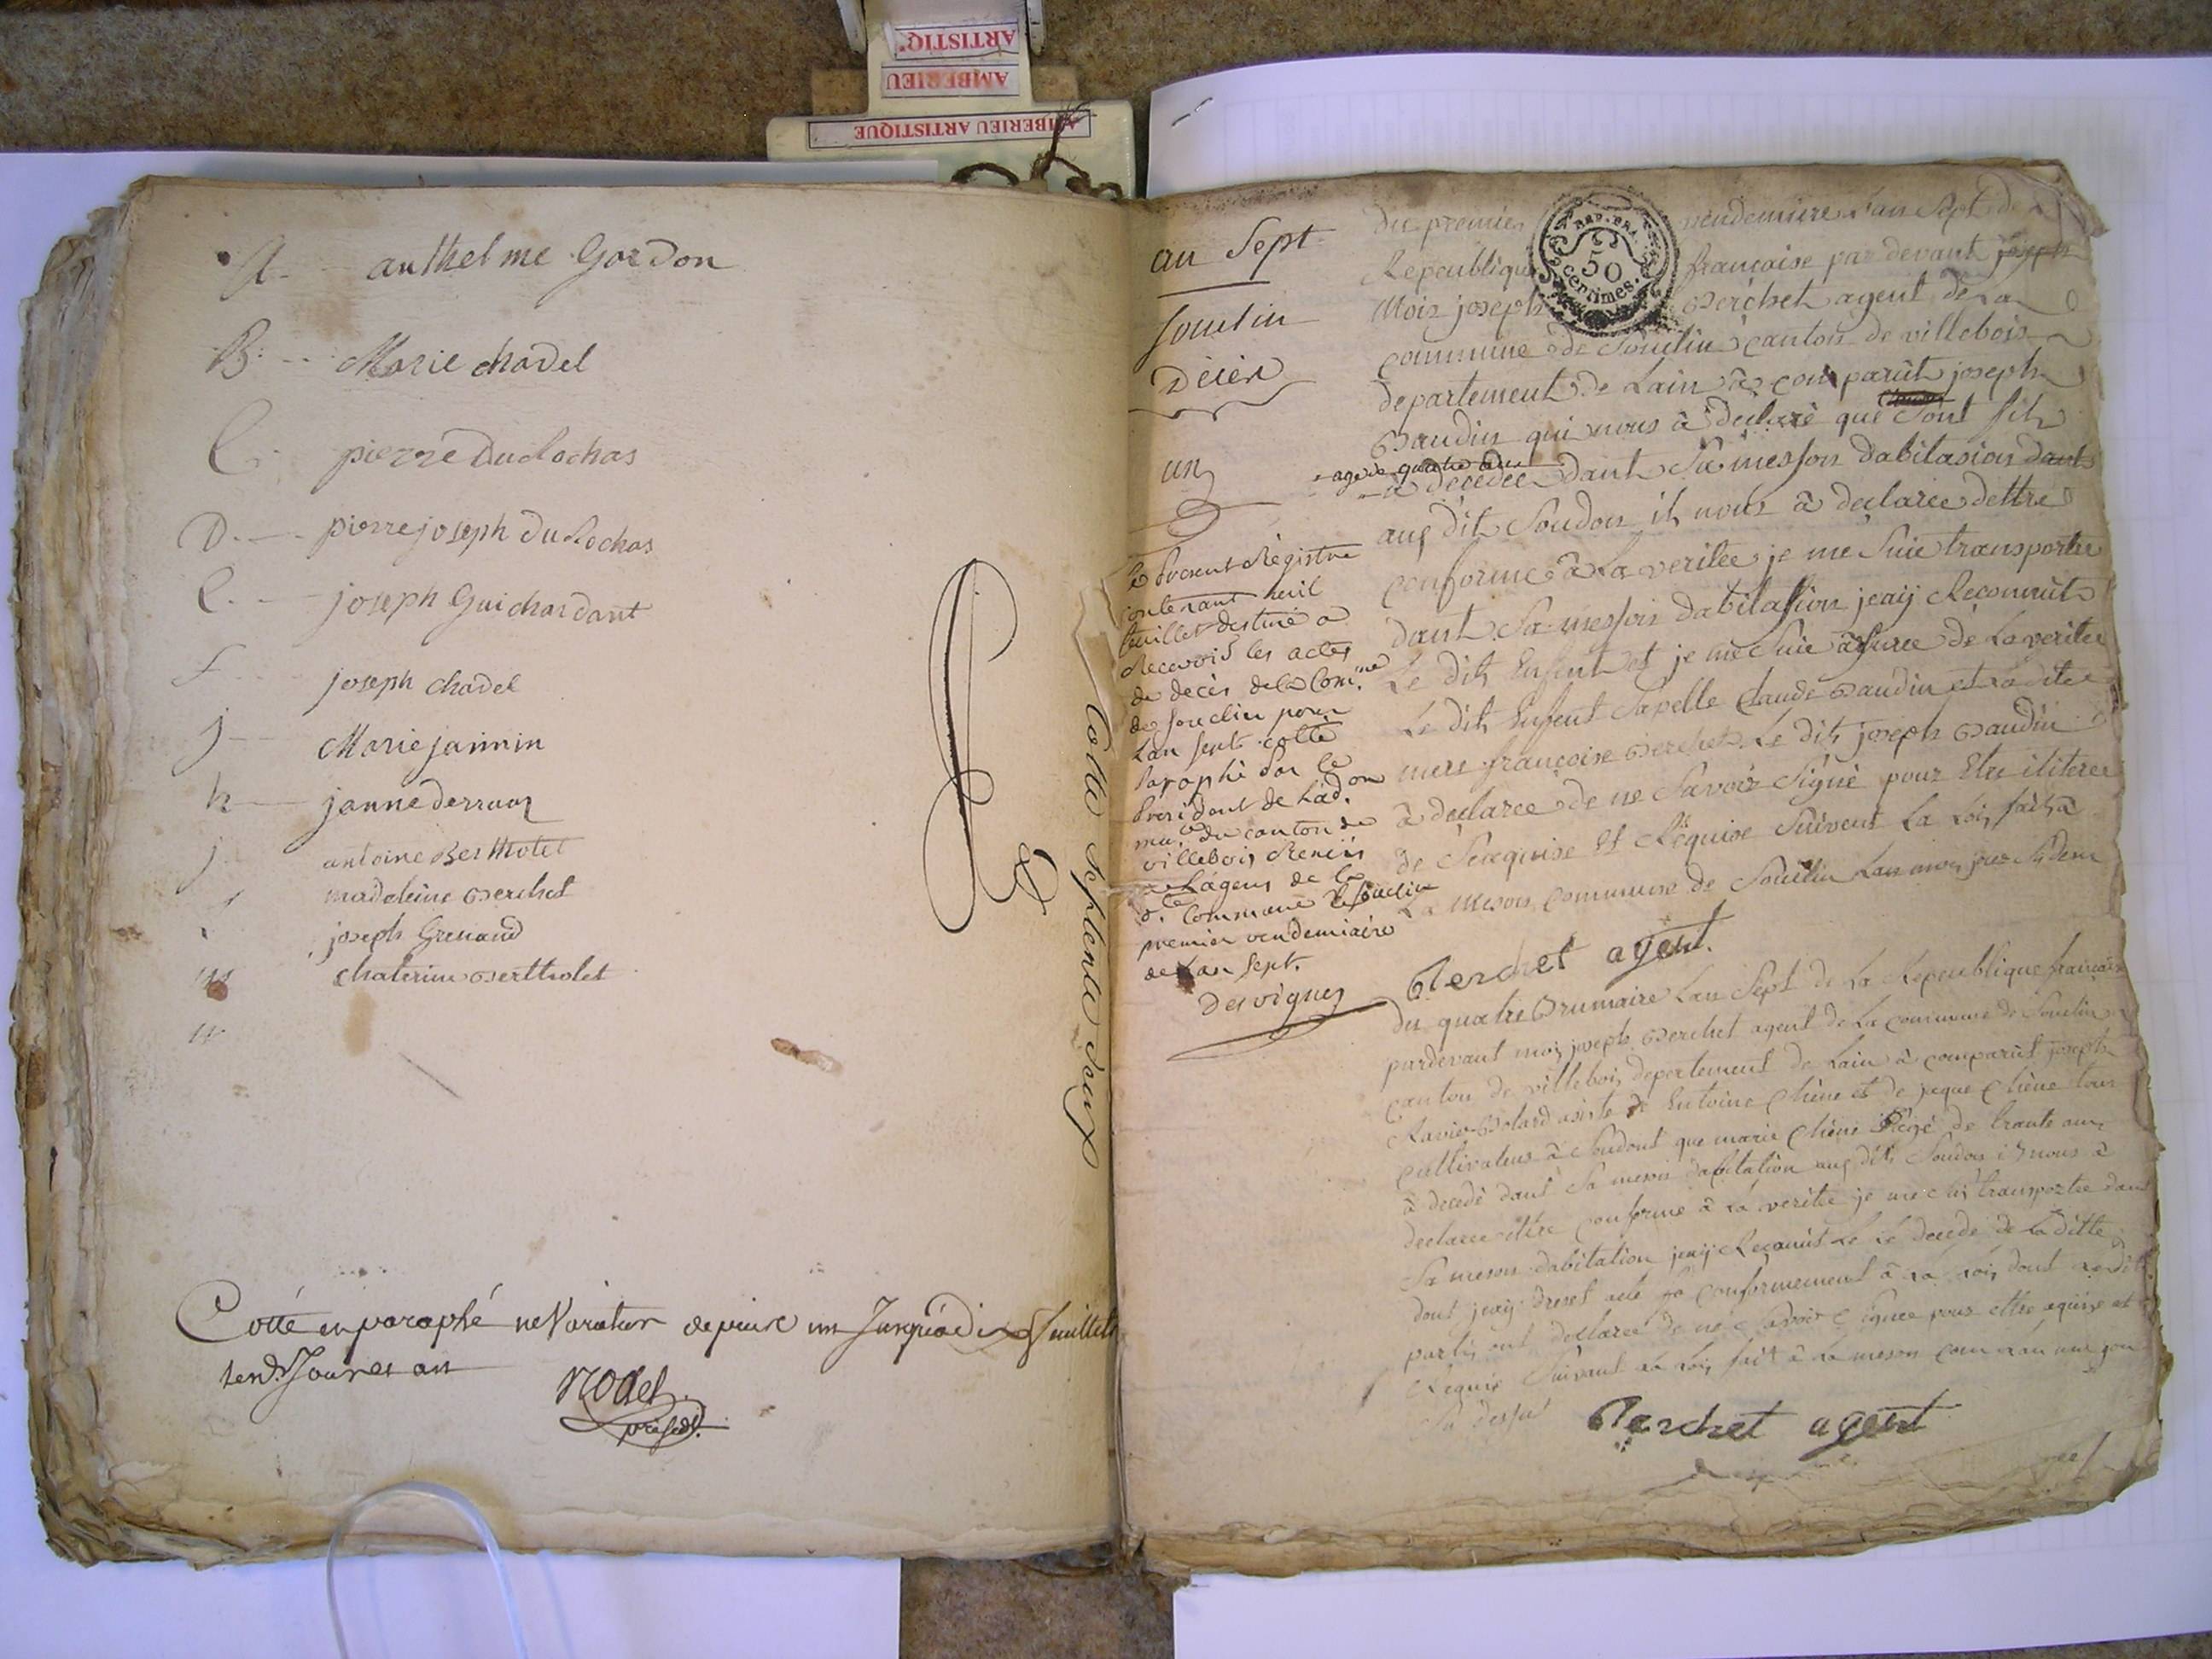 ARTISTIQ'
AMBERIEU
AMBERIEU ARTISTIQUE
A. anthelme Gordon
B. Marie chadel
C. pierre Dulochas
D. pierre joseph Dulochas
E. joseph Guichardant
f joseph chadel
j Marie jannin
h janne derruaz
j antoine Berthotet
madeleine Berchet
joseph Grenand
m chaterine Bertholet
n
Cotté en paraphé ne Variatur depuis un Jusqu'a dix feuillets
Nodet
présidt.
Cotte septente deux
an Sept
Souclin
Décès
un
le present Registre
contenant huit
feuillet destiné a
Recevoir les actes
de décès de la Com.ne
de Souclin pour
Lan sept cotté
Paraphé Par le
President de Lad.on
mu.le du canton de
villebois Remis
a Lagent de la
d.te Commune de Souclin
premier vendemiaire
de Lan sept.
Desvignes
du premier vendemiere l'an Sept de
Republique francaise par devant joseph
Mois joseph Berchet agent de La
commune de Souclin canton de villebois
departement de Lain à comparût joseph
Baudin qui nous à declaré que Sont fils
age de quatre ans
à décedee dant Sa messon dabitasion dant
aug dit Soudon il nous à declaree dettre
conforme à La veritee je me Suie transporter
dant Sa messon dabitassion jeaij Reconnut
Le dit Enfent et je me Suie assuree de La veritee
Le dit Enfent Sapelle Claude Baudin et Sa ditee
mere francoise Berchet Le dit joseph Baudin
à declaree de ne Savoir Signé pour Etre iliteree
de Secquise Et Réquise Suivent La Loy fait à
La meson commune de Souclin Lan mois jour Sidesu
Berchet agent.
du quatre Brumaire Lan Sept de La Republique francaise
pardevant mois joseph Berchet agent de La commune de Souclin
canton de villebois departement de Lain à comparut joseph
Ravier Bolard asiste de Entoine Chêne et de jaque Chêne tous
cultivateus à Soudont que marie Chêne agé de trante ans
à decedé dant Sa meson dabitation aug dit Soudon il nous à
declaree ettre conforme à La veritee je me Sui transportee dant
Sa meson dabitation jeaij Reconnut Le Le decede de La ditte
dont jeaij dreset acte Sa conformement à La Loij dont La dit
partis ont declaree de ne Savoir Signee pour ettre aquise et
Requis Suivant La Loij fait à La meson com Lan mois jour
Si desus
Berchet agent